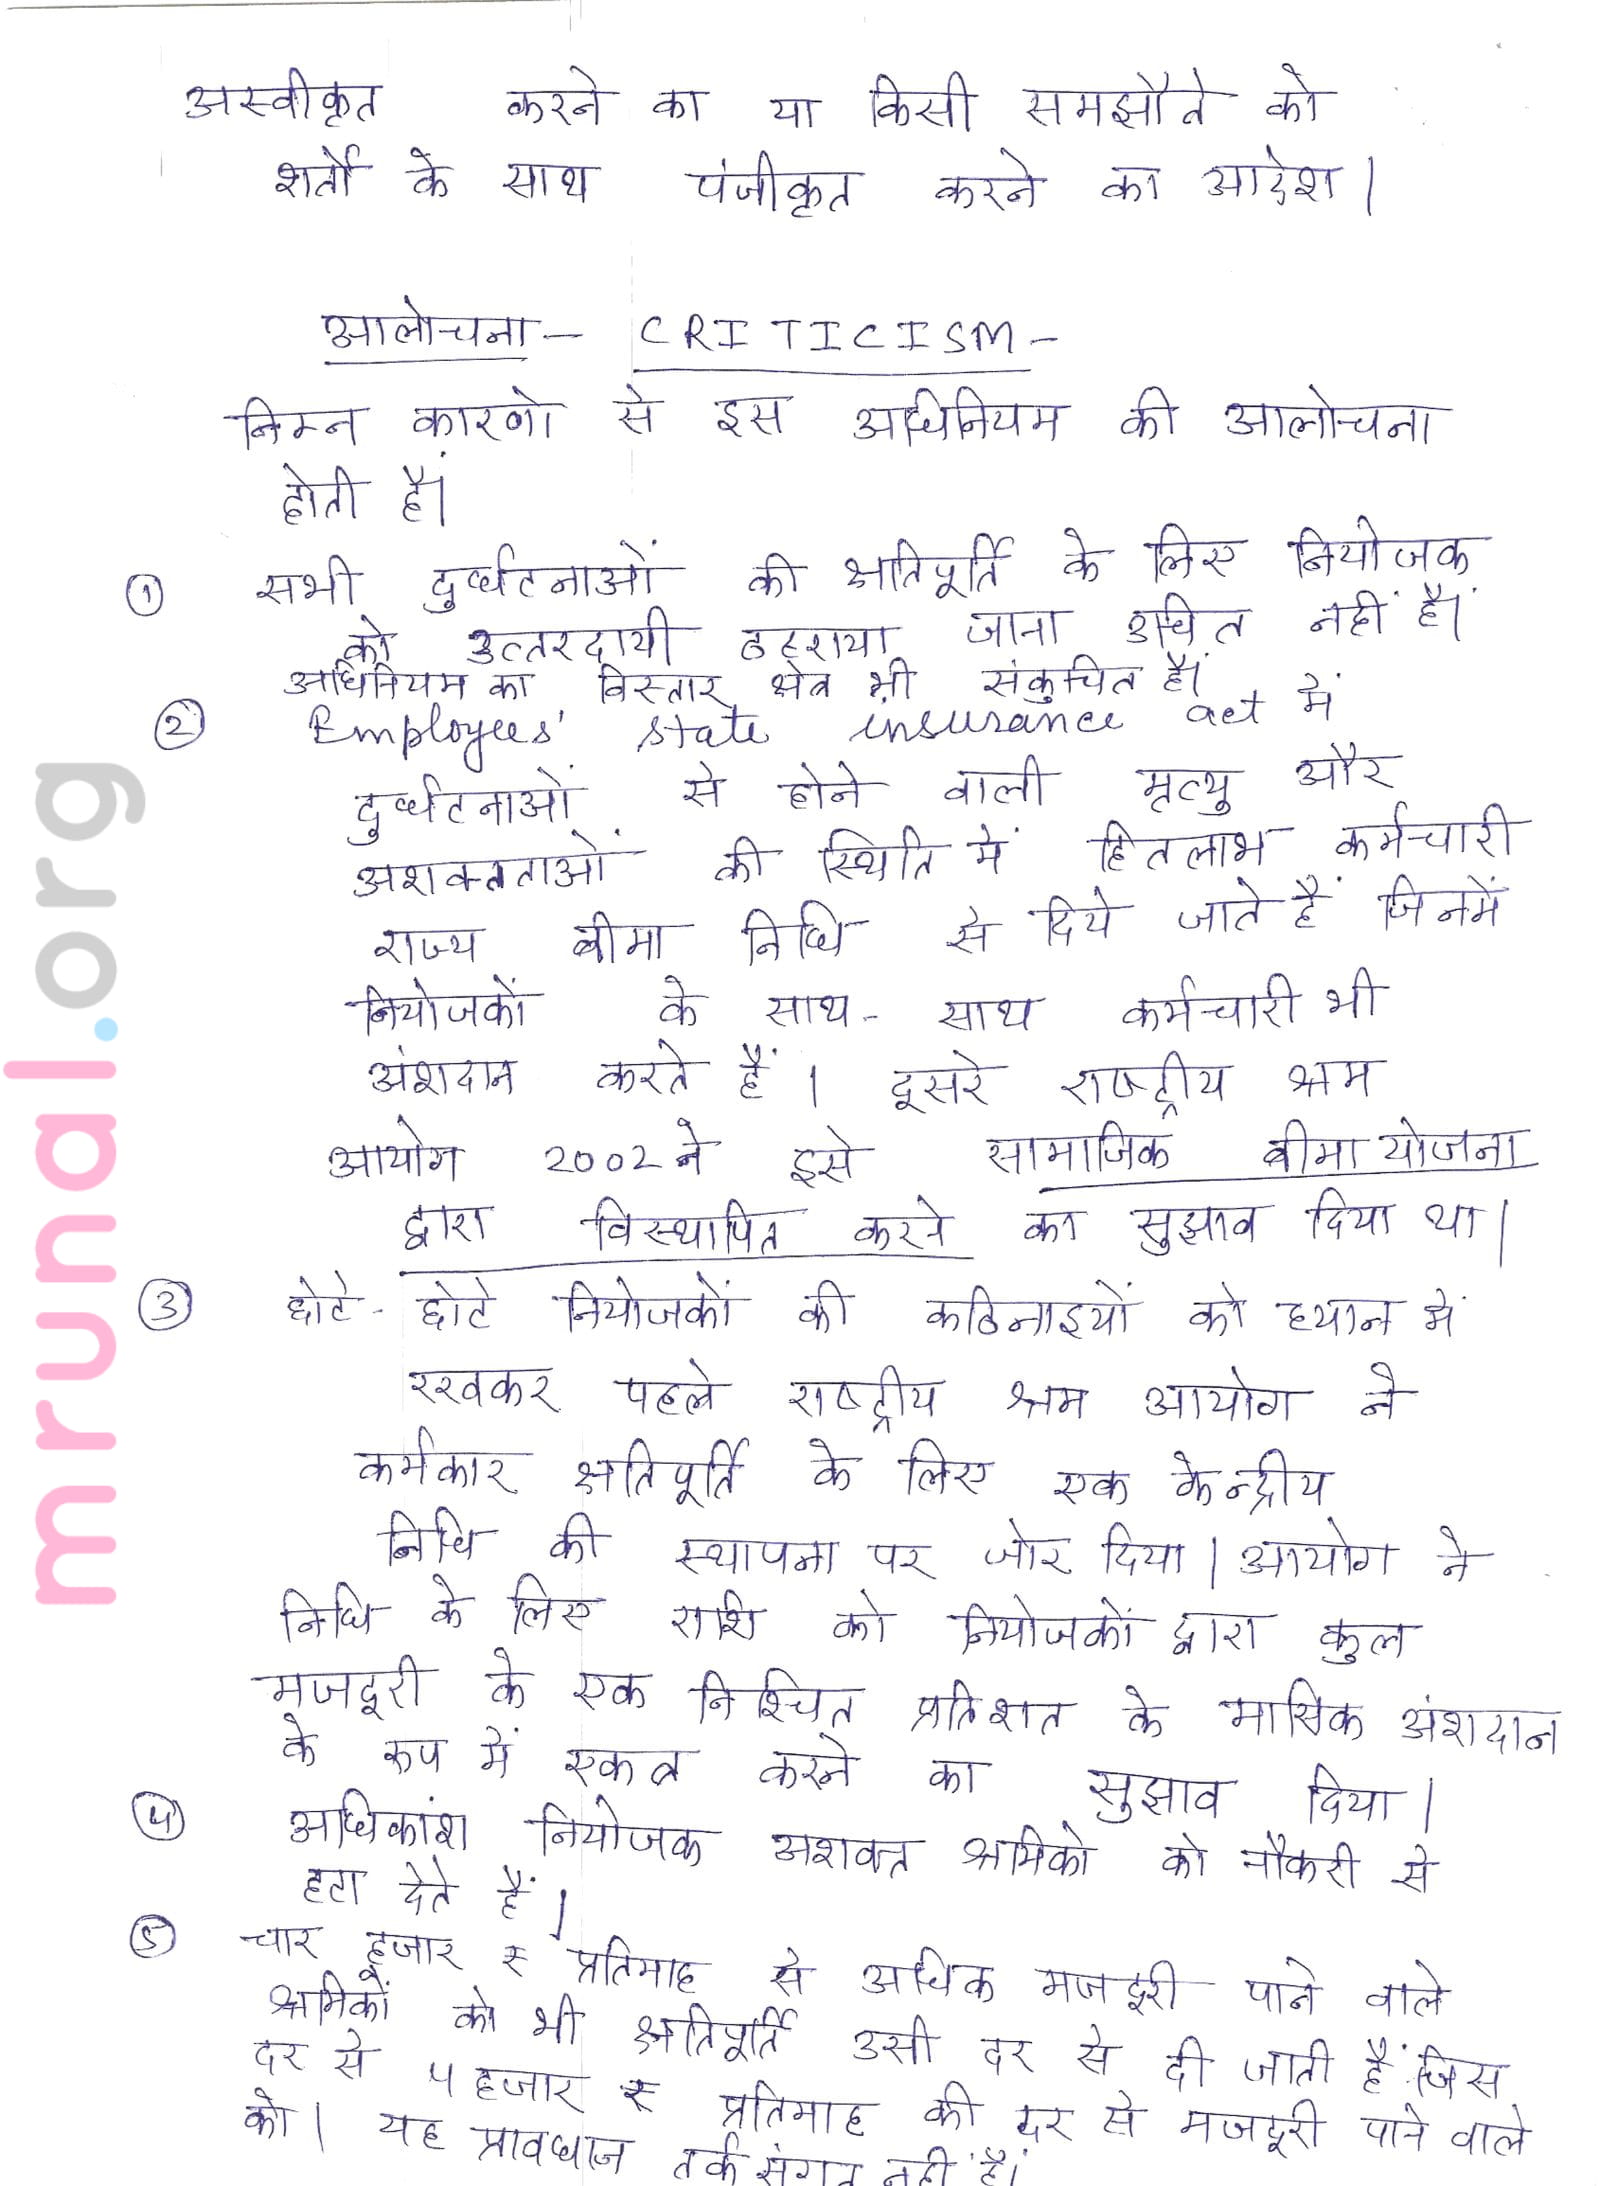 अस्वीकृत करने का या किसी समझौते को
शर्तो के साथ पंजीकृत करने का आदेश।
आलोचना - CRITICISM -
निम्न कारणो से इस अधिनियम की आलोचना
होती है।
① सभी दुर्घटनाओं की क्षतिपूर्ति के लिए नियोजक
को उत्तरदायी ठहराया जाना उचित नहीं है।
अधिनियम का विस्तार क्षेत्र भी संकुचित है।
② Employees' state insurance act में
दुर्घटनाओं से होने वाली मृत्यु और
अशक्तताओं की स्थिति में हितलाभ कर्मचारी
राज्य बीमा निधि से दिये जाते हैं जिनमें
नियोजकों के साथ - साथ कर्मचारी भी
अंशदान करते हैं। दूसरे राष्ट्रीय श्रम
आयोग 2002 ने इसे सामाजिक बीमा योजना
द्वारा विस्थापित करने का सुझाव दिया था।
③ छोटे - छोटे नियोजकों की कठिनाइयों को ध्यान में
रखकर पहले राष्ट्रीय श्रम आयोग ने
कर्मकार क्षतिपूर्ति के लिए एक केन्द्रीय
निधि की स्थापना पर जोर दिया। आयोग ने
निधि के लिए राशि को नियोजकों द्वारा कुल
मजदूरी के एक निश्चित प्रतिशत के मासिक अंशदान
के रूप में एकत्र करने का सुझाव दिया।
④ अधिकांश नियोजक अशक्त श्रमिको को नौकरी से
हटा देते हैं।
⑤ चार हजार ₹ प्रतिमाह से अधिक मजदूरी पाने वाले
श्रमिकों को भी क्षतिपूर्ति उसी दर से दी जाती हैं जिस
दर से 4 हजार ₹ प्रतिमाह की दर से मजदूरी पाने वाले
को। यह प्रावधान तर्कसंगत नहीं है।
mrunal.org